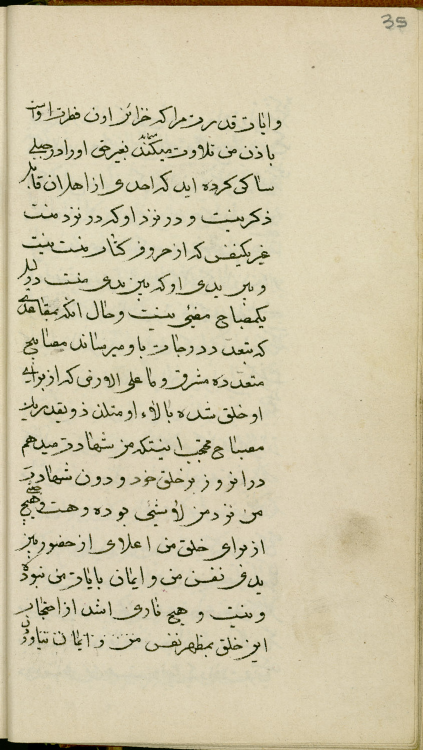 35
و ایات قدرت مرا که خزائن اون فطرت اوست
باذن من تلاوت میکند بغیر حق اورا در جبلی
ساکن کرده اید که احدی از اهل ان قابل
ذکر نیست و در نزد او که در نزد منست
غیر یکنفس که از حروف کتاب منست نیست
و بین یدی او که بین یدی منست در لیل
یکمصباح مضیئی نیست و حال انکه بمقاعدی
که بتعدد درجات باو میرساند مصابیح
متعدده مشرق و ما علی الارض که از برای
او خلق شده بالاء او متلذذ و بقدر یک
مصباح محتجب اینستکه من شهادت میدهم
در این روز بر خلق خود و دون شهادت
من نزد من لاشیئی بوده و هست و هیچ جنتی
از برای خلق من اعلای از حضور بین
یدی نفس من و ایمان بایات من نبوده
و نیست و هیچ ناری اشد از احتجاب
این خلق بمظهر نفس من و ایمان نیاوردن